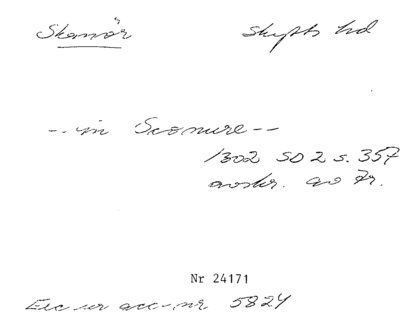 Skanör Skytts hd
-- in Scanure --
1302 SD 2 s. 357
avskr. av Fr.
Nr 24171
Exc ur acc-nr 5824